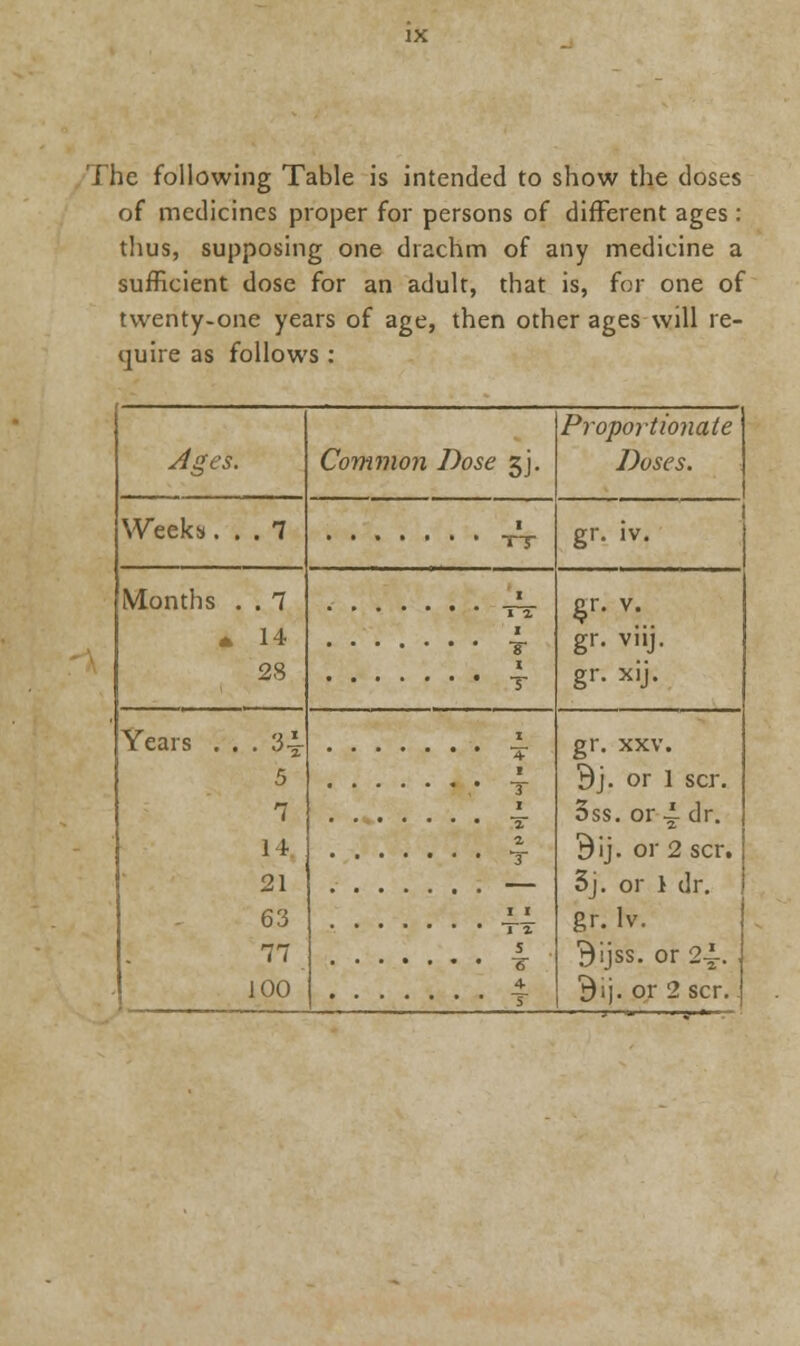 ix
The following Table is intended to show the doses
of medicines proper for persons of different ages :
thus, supposing one drachm of any medicine a
sufficient dose for an adult, that is, for one of
twenty-one years of age, then other ages will re-
quire as follows :
Ages. Common Dose ʒj. Proportionate Doses.
Weeks. . . 7 . . . . . . . . 1/15 gr. iv.
Months . . 7 . . . . . . . 1/12 gr. v.
14 . . . . . . . 1/8 gr. viij.
28 . . . . . . . . 1/5 gr. xij.
Years . . . 3½ . . . . . . . ¼ gr. xxv.
5 . . . . . . . . ⅓ ℈j. or 1 scr.
7 . . . . . . . ½ ʒss. or ½ dr.
14 . . . . . . . ⅔ ℈ij. or 2 scr.
21 . . . . . . . — ʒj. or 1 dr.
63 . . . . . . . 11/12 gr. lv.
77 . . . . . . . ⅚ ℈ijss. or 2½.
100 . . . . . . . ⅘ ℈ij. or 2 scr.